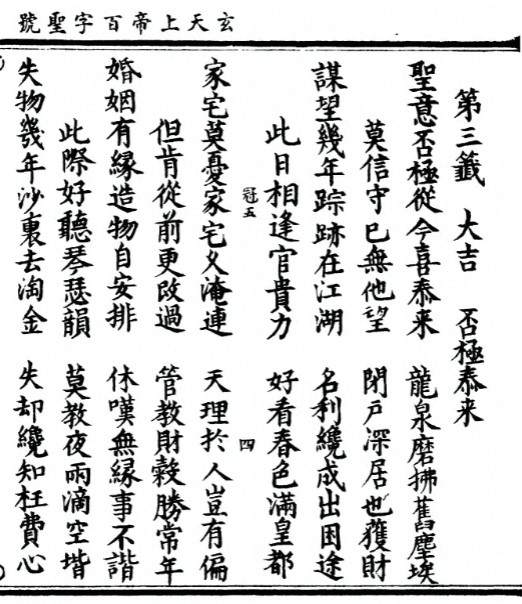 玄天上帝百字聖號
第三籤 大吉 否極泰来
聖意否極從今喜泰来 龍泉磨拂舊塵埃
莫信守已無他望 閉戸深居也獲財
謀望幾年踪跡在江湖 名利纔成出困途
此日相逢官貴力 好看春色滿皇都
冠五 四
家宅莫憂家宅久淹連 天理於人豈有偏
但肯從前更改過 管教財穀勝常年
婚姻有縁造物自安排 休嘆無縁事不諧
此際好聽琴瑟韻 莫教夜雨滴空堦
失物幾年沙裏去淘金 失却纔知枉費心